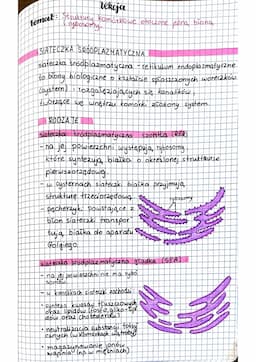 lekcja
temat: Struktury komórkowe otoczone jedną błoną
i rybosomy.
SIATECZKA ŚRÓDPLAZMATYCZNA
siateczka śródplazmatyczna - retikulum endoplazmatyczne
to błony biologiczne o kształcie spłaszczonych woreczków
(cystern) i rozgałęziających się kanalików,
tworzące we wnętrzu komórki złożony system.
RODZAJE
siateczka śródplazmatyczna szorstka (RER)
- na jej powierzchni występują rybosomy,
które syntezują białka o określonej strukturze
pierwszorzędowej.
- w cysternach siateczki białka przyjmują
strukturę trzeciorzędową.
rybosomy
- pęcherzyki powstające z
błon siateczki transpor-
tują białka do aparatu
Golgiego.
siateczka śródplazmatyczna gładka (SER)
- na jej powierzchni nie ma rybo-
somów.
- w kanalikach siateczki zachodzi
- synteza kwasów tłuszczowych
oraz lipidów
oraz cholesterolu)
- neutralizacja substancji toksy-
cznych (w komórkach wątroby)
- magazynowanie jonów
wapnia (np w mięśniach)